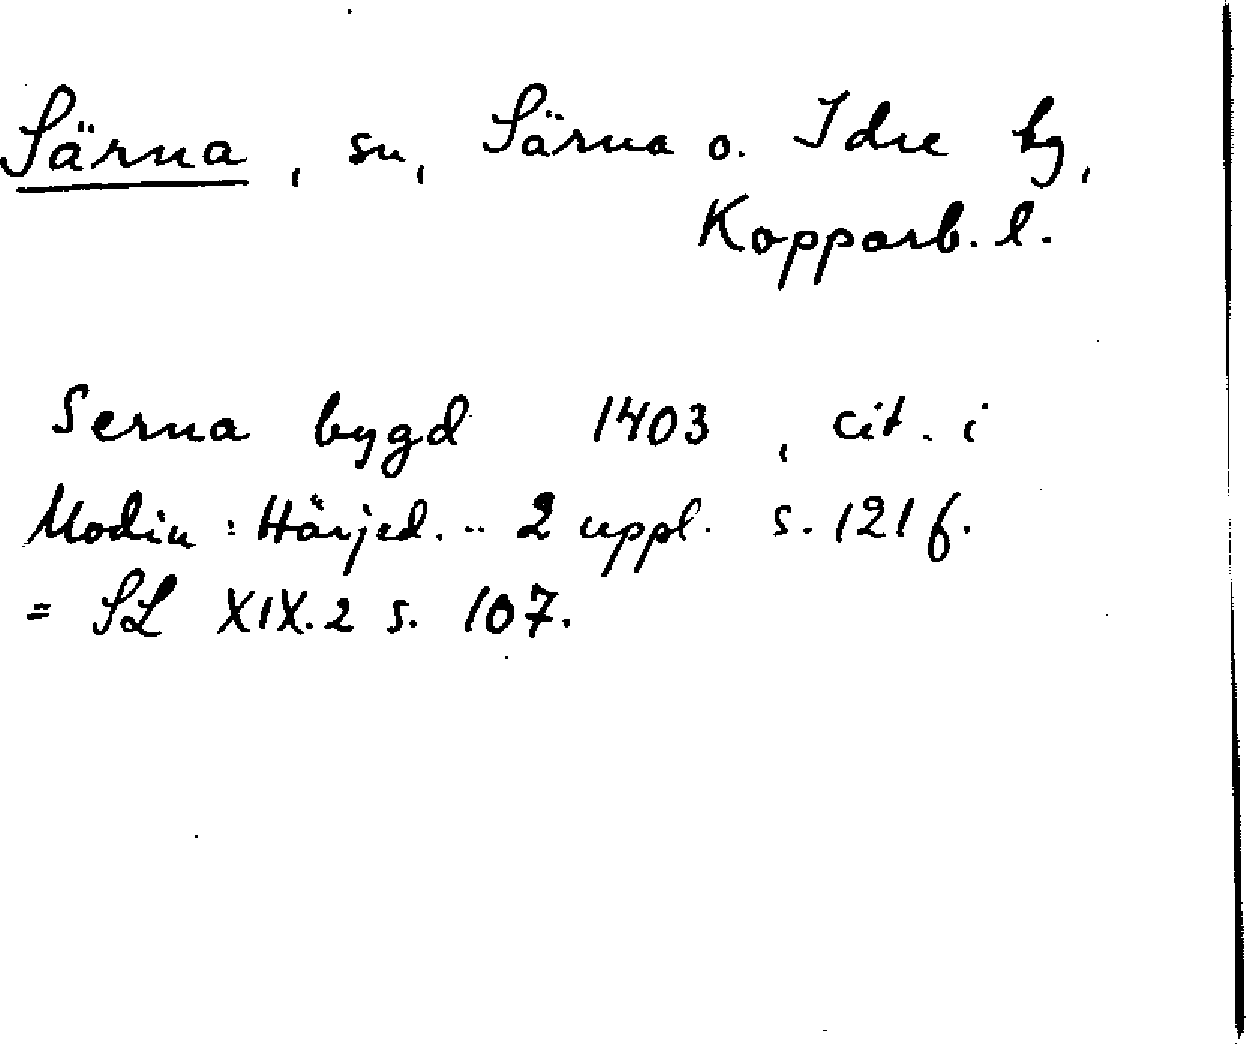 Särna, sn, Särna o. Idre tg,
Kopparb. l.
Serna bygd 1403, cit. i
Modin: Härjed. .. 2 uppl. s. 121 f.
= SL XIX.2 s. 107.